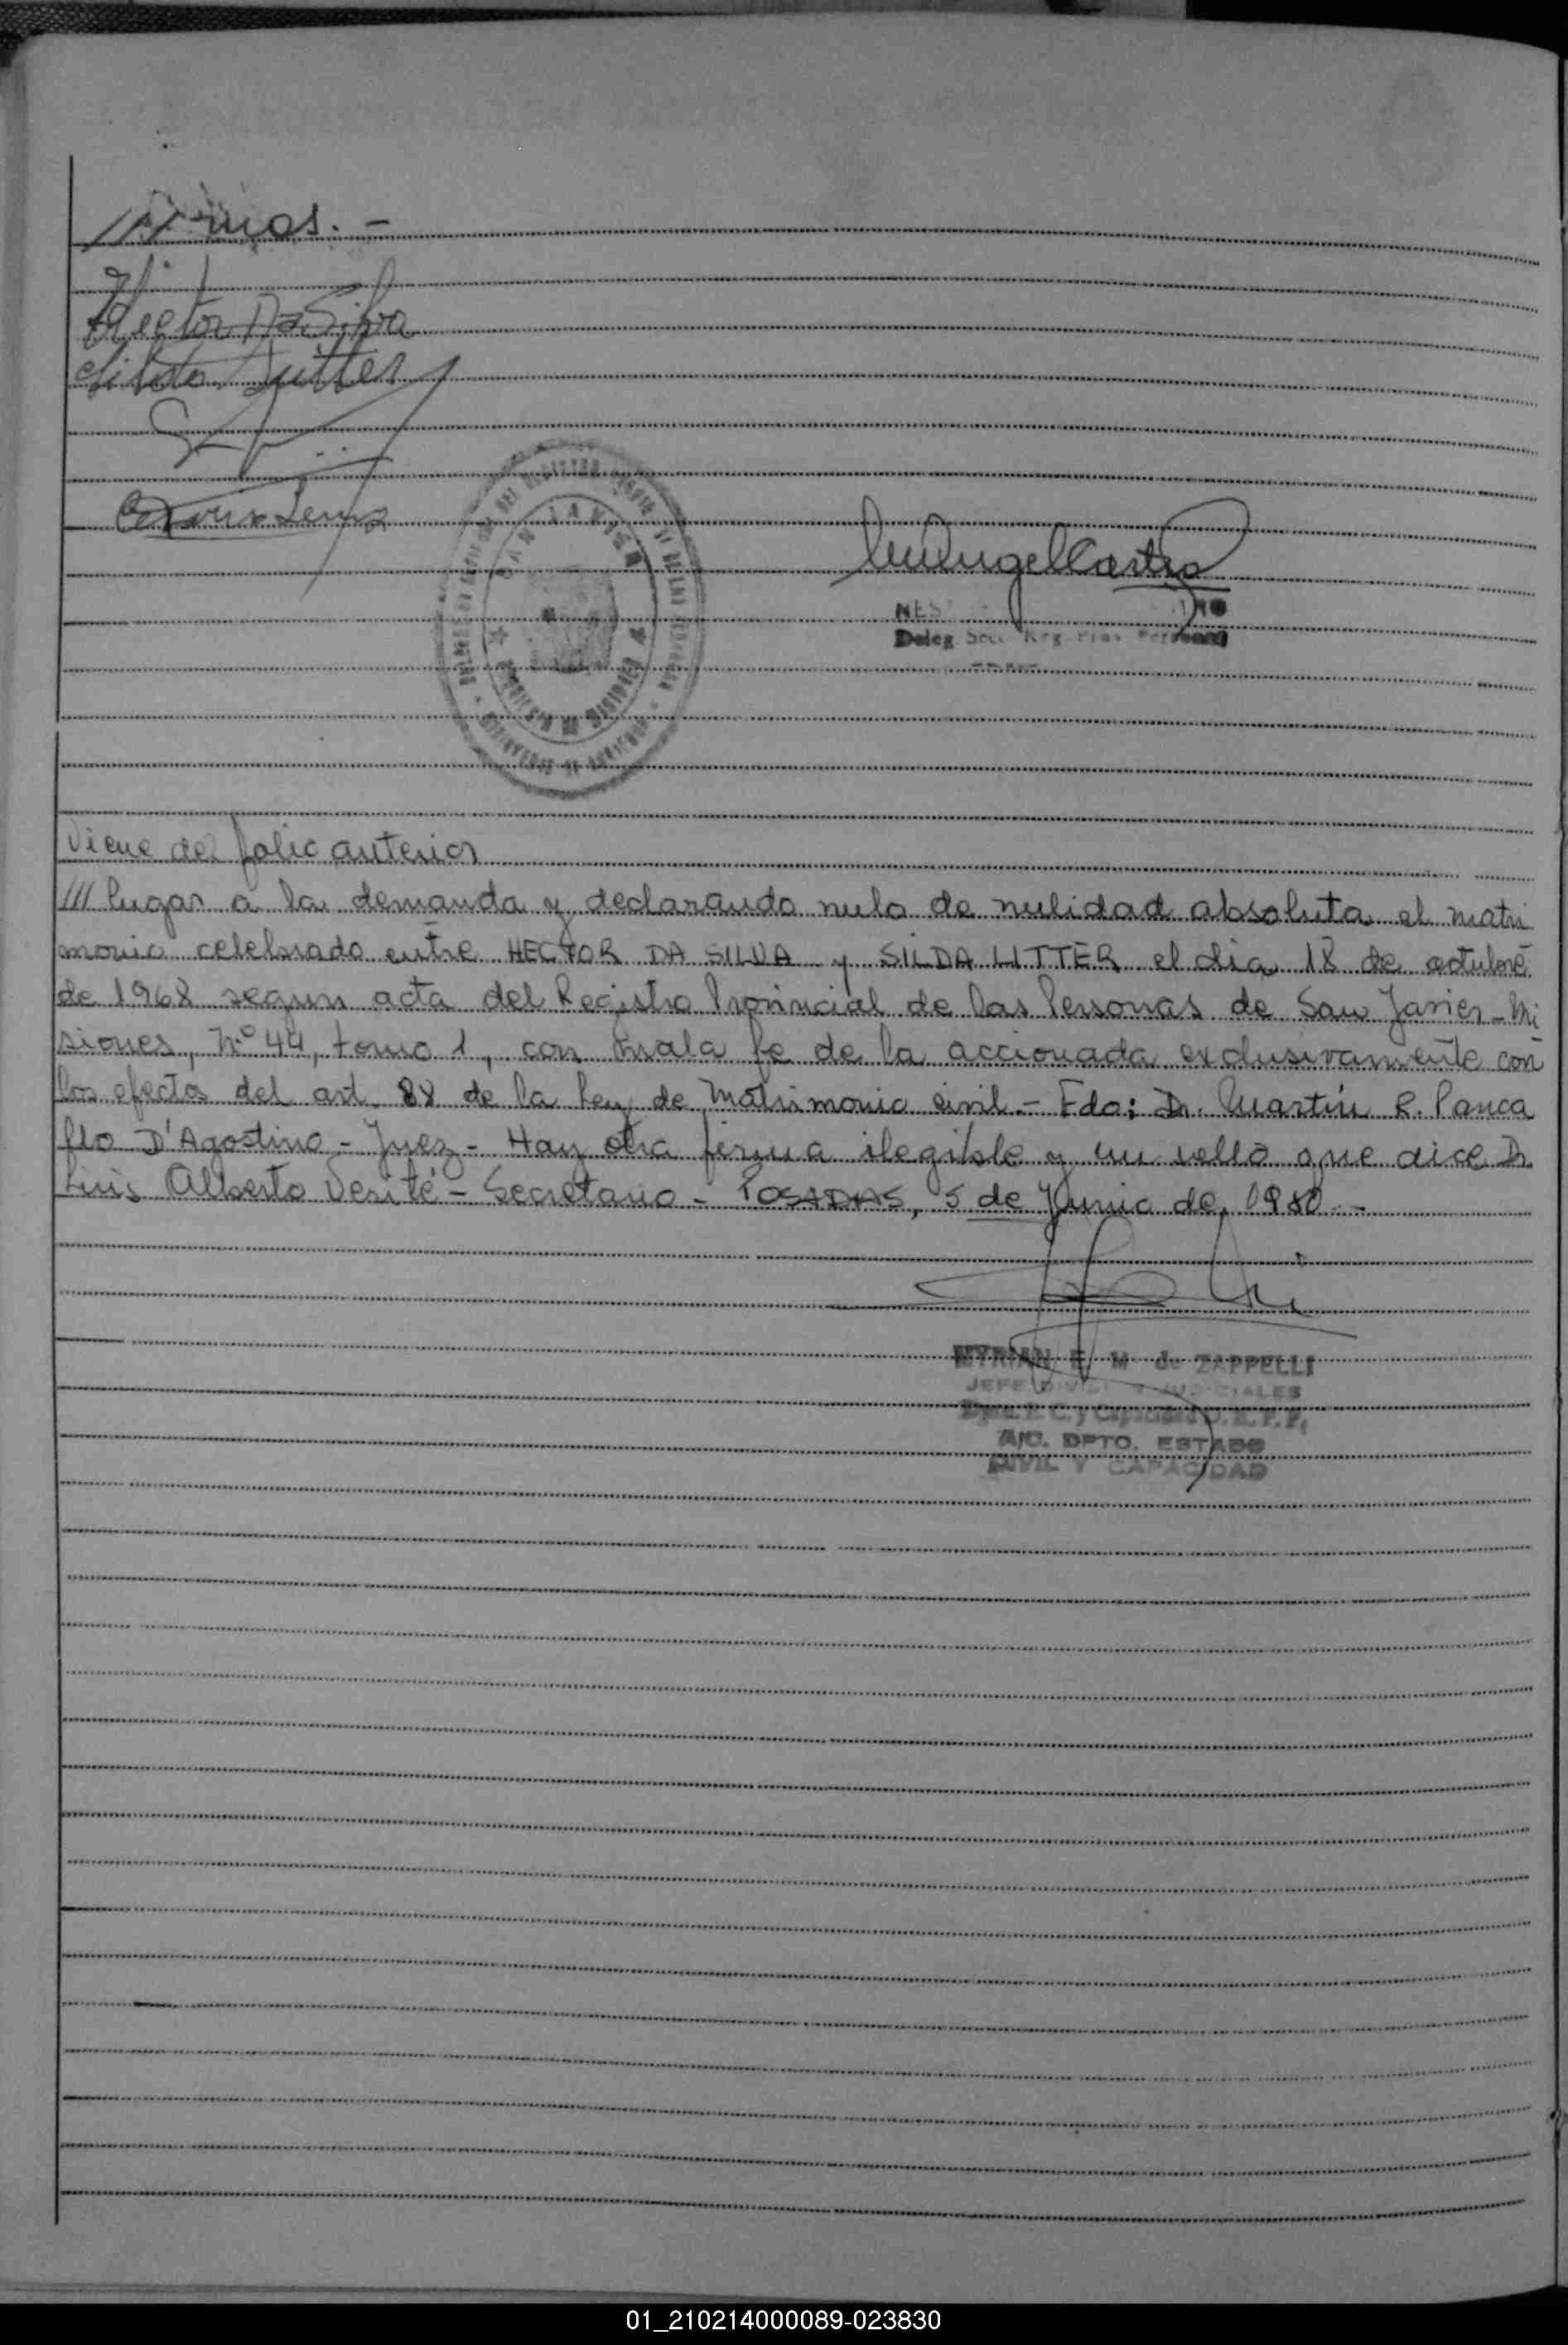 ///rmos.-
Hector Da Silva
Silda Litter
SAN JAVIER
NES
Deleg. Secc. Reg. Prov. Personas
Viene del folio anterior
/// lugar a la demanda y declarando nulo de nulidad absoluta el matri
monio celebrado entre HECTOR DA SILVA y SILDA LITTER el dia 18 de octubre
de 1968 segun acta del Registro Provincial de las Personas de San Javier-Mi
siones, Nº 44, tomo 1, con mala fe de la accionada exclusivamente con
los efectos del art. 88 de la Ley de Matrimonio Civil.- Fdo: Dr. Martín R. Panca
llo D'Agostino - Juez - Hay otra firma ilegible y un sello que dice Dr.
Luis Alberto Verité - Secretario - POSADAS, 5 de Junio de 1980.-
MYRIAN E. M. de ZAPPELLI
JEFE DIVISION JUDICIALES
Dpto. E. C. y Capacidad
A/C. DPTO. ESTADO
CIVIL Y CAPACIDAD
01_210214000089-023830